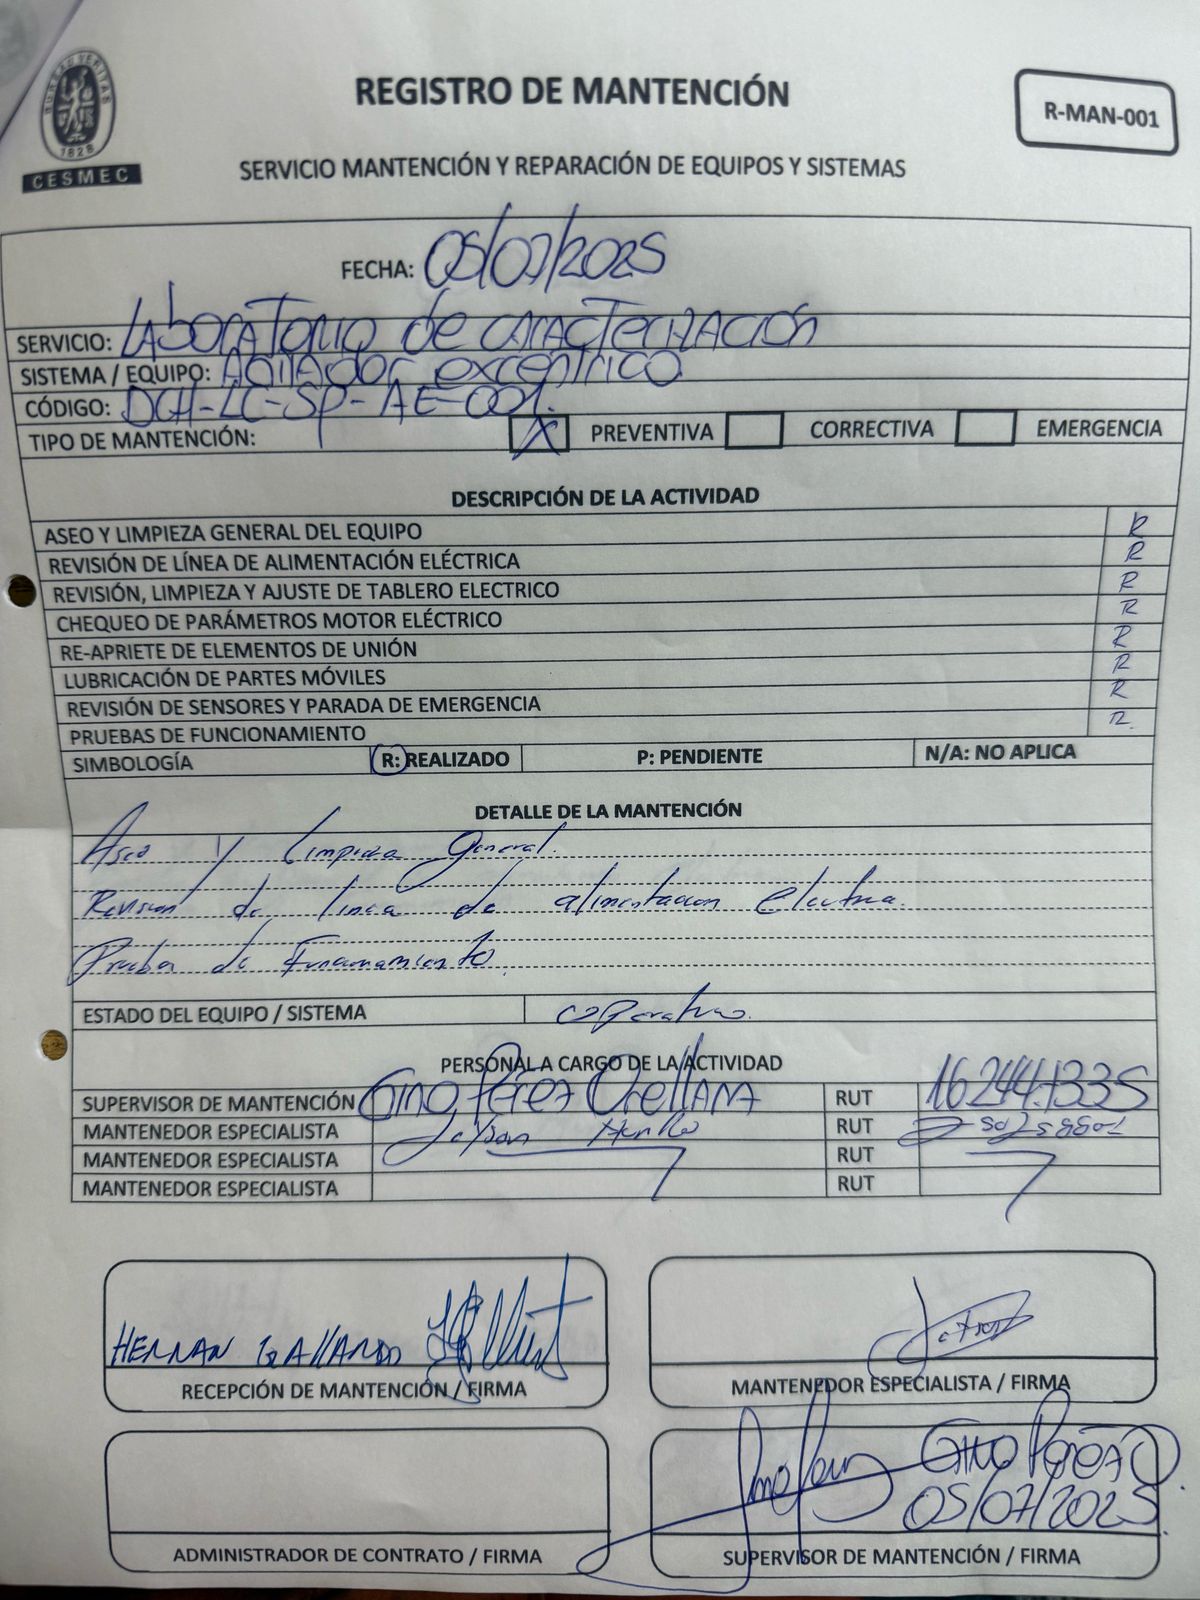 BUREAU VERITAS
1828
CESMEC
REGISTRO DE MANTENCIÓN
R-MAN-001
SERVICIO MANTENCIÓN Y REPARACIÓN DE EQUIPOS Y SISTEMAS
FECHA: 05/07/2025
SERVICIO: Laboratorio de caracterización
SISTEMA / EQUIPO: Agitador excéntrico
CÓDIGO: DCH-LC-SP-AE-001.
TIPO DE MANTENCIÓN: X PREVENTIVA CORRECTIVA EMERGENCIA
DESCRIPCIÓN DE LA ACTIVIDAD
ASEO Y LIMPIEZA GENERAL DEL EQUIPO R
REVISIÓN DE LÍNEA DE ALIMENTACIÓN ELÉCTRICA R
REVISIÓN, LIMPIEZA Y AJUSTE DE TABLERO ELECTRICO R
CHEQUEO DE PARÁMETROS MOTOR ELÉCTRICO R
RE-APRIETE DE ELEMENTOS DE UNIÓN R
LUBRICACIÓN DE PARTES MÓVILES R
REVISIÓN DE SENSORES Y PARADA DE EMERGENCIA R
PRUEBAS DE FUNCIONAMIENTO R.
SIMBOLOGÍA R: REALIZADO P: PENDIENTE N/A: NO APLICA
DETALLE DE LA MANTENCIÓN
Aseo y Limpieza general.
Revision de linea de alimentacion electrica.
Prueba de Funcionamiento.
ESTADO DEL EQUIPO / SISTEMA operativo.
PERSONAL A CARGO DE LA ACTIVIDAD
SUPERVISOR DE MANTENCIÓN Gino Pérez Orellana RUT 16.244.133-5
MANTENEDOR ESPECIALISTA RUT
MANTENEDOR ESPECIALISTA RUT
MANTENEDOR ESPECIALISTA RUT
HERNAN GALLARDO
RECEPCIÓN DE MANTENCIÓN / FIRMA
MANTENEDOR ESPECIALISTA / FIRMA
Gino Pérez O.
05/07/2025.
ADMINISTRADOR DE CONTRATO / FIRMA
SUPERVISOR DE MANTENCIÓN / FIRMA